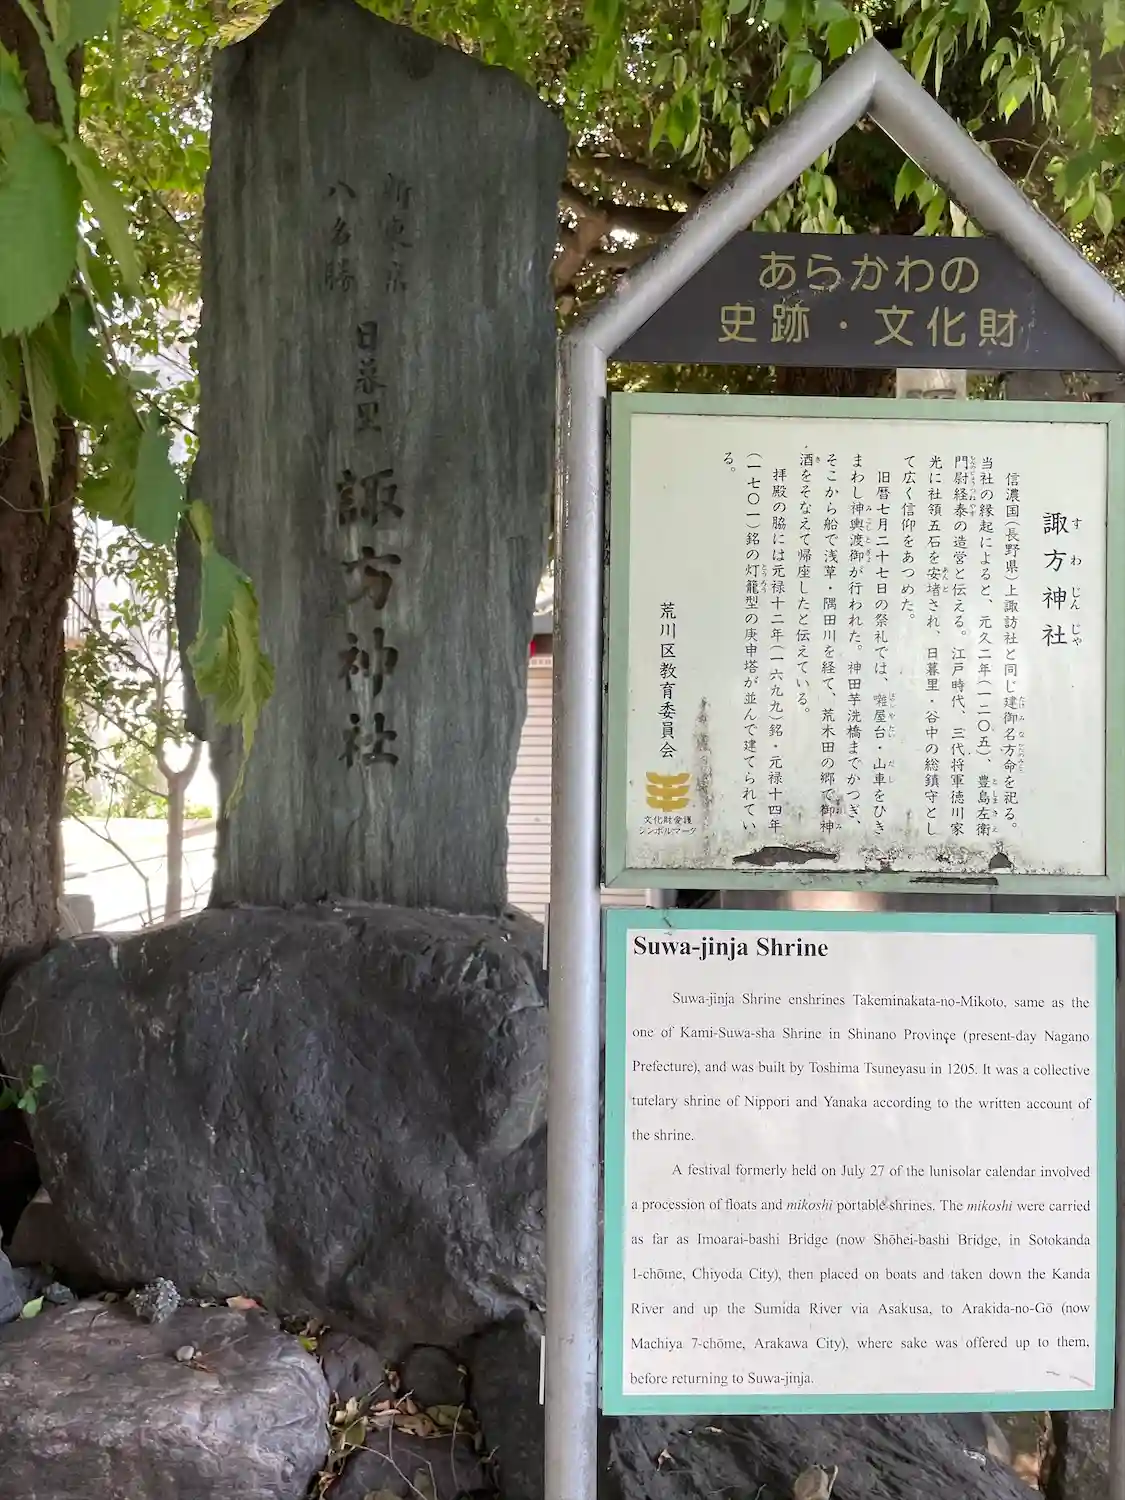 新東京
八名勝
日暮里
諏方神社
あらかわの
史跡・文化財
諏方神社
すわじんじゃ
信濃国(長野県)上諏訪社と同じ建御名方命を祀る。
当社の縁起によると、元久二年(一二〇五)、豊島左衛
門尉経泰の造営と伝える。江戸時代、三代将軍徳川家
光に社領五石を安堵され、日暮里・谷中の総鎮守とし
て広く信仰をあつめた。
旧暦七月二十七日の祭礼では、囃屋台・山車をひき
まわし神輿渡御が行われた。神田芋洗橋までかつぎ、
そこから船で浅草・隅田川を経て、荒木田の郷で御神
酒をそなえて帰座したと伝えている。
拝殿の脇には元禄十二年(一六九九)銘・元禄十四年
(一七〇一)銘の灯籠型の庚申塔が並んで建てられてい
る。
荒川区教育委員会
文化財愛護
シンボルマーク
Suwa-jinja Shrine
Suwa-jinja Shrine enshrines Takeminakata-no-Mikoto, same as the
one of Kami-Suwa-sha Shrine in Shinano Province (present-day Nagano
Prefecture), and was built by Toshima Tsuneyasu in 1205. It was a collective
tutelary shrine of Nippori and Yanaka according to the written account of
the shrine.
A festival formerly held on July 27 of the lunisolar calendar involved
a procession of floats and mikoshi portable shrines. The mikoshi were carried
as far as Imoarai-bashi Bridge (now Shōhei-bashi Bridge, in Sotokanda
1-chōme, Chiyoda City), then placed on boats and taken down the Kanda
River and up the Sumida River via Asakusa, to Arakida-no-Gō (now
Machiya 7-chōme, Arakawa City), where sake was offered up to them,
before returning to Suwa-jinja.